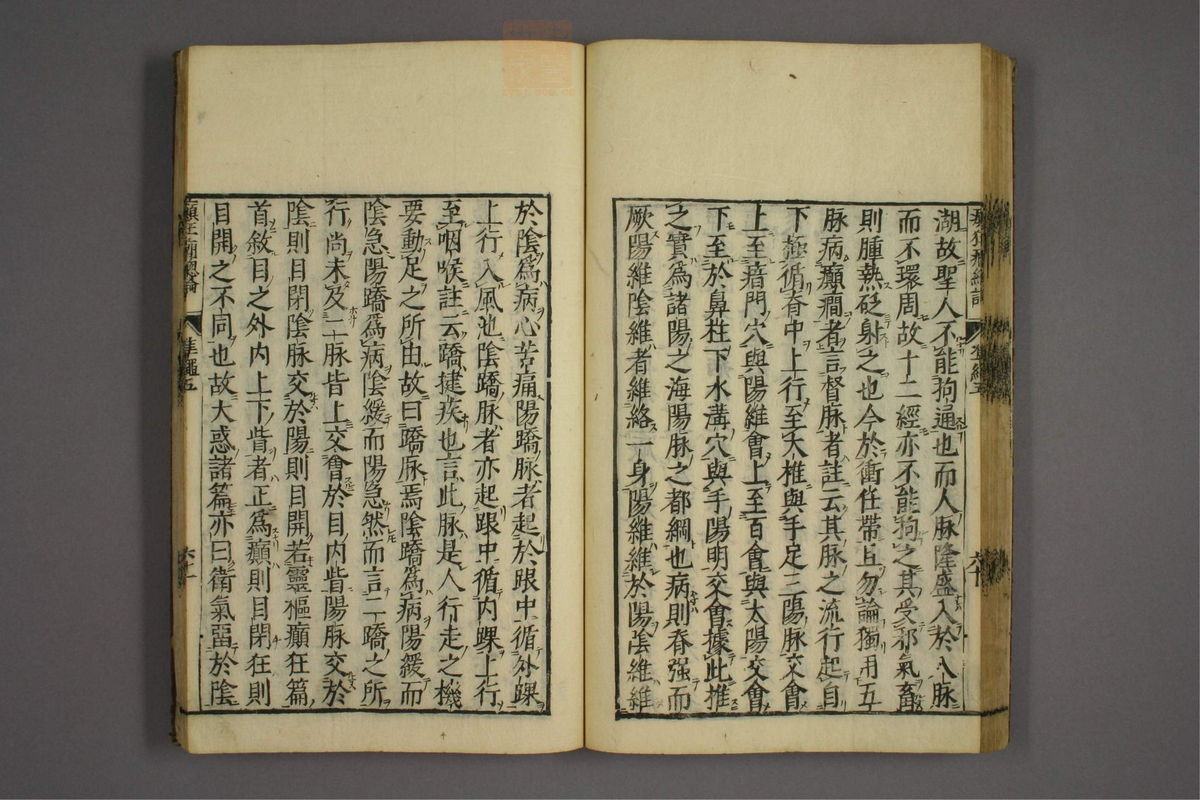 湖故聖人不能狥通也而人脉隆盛入於八脉
而不環周故十二經亦不能狥之其受邪氣畜
則腫熱砭射之也今於衝任帶且勿論獨用五
脉病癲癎者言督脉者註云其脉之流行起自
下極循脊中上行至大椎與手足三陽脉交會
上至瘖門穴與陽維會上至百會與太陽交會
下至於鼻柱下水溝穴與手陽明交會據此推
之實爲諸陽之海陽脉之都綱也病則脊强而
厥陽維陰維者維絡一身陽維維於陽陰維維
於陰爲病心苦痛陽蹻脉者起於跟中循外踝
上行入風池陰蹻脉者亦起跟中循内踝上行
至咽喉註云蹻揵疾也言此脉是人行走之機
要動足之所由故曰蹻脉焉陰蹻爲病陽緩而
陰急陽蹻爲病陰緩而陽急然而言二蹻之所
行尚未及二脉皆上交會於目内眥陽脉交於
陰則目閉陰脉交於陽則目開若靈樞癲狂篇
首敘目之外内上下眥者正爲癲則目閉狂則
目開之不同也故大惑諸篇亦曰衛氣畱於陰
六十一